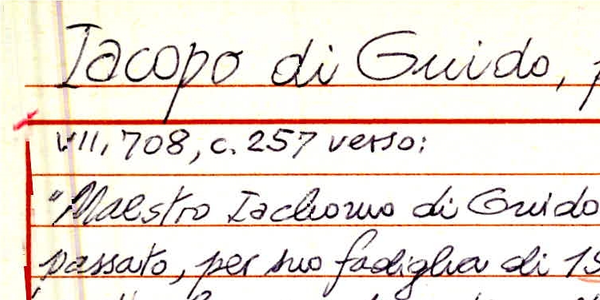 Iacopo di Guido,
VII, 708, c. 257 verso:
"Maestro Iachomo di Guido
passato, per suo fadiglia di